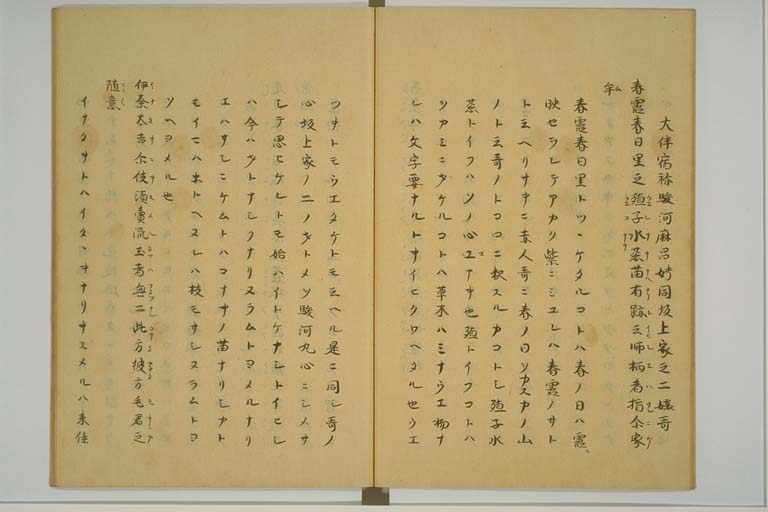 大伴宿祢駿河麻呂娉同坂上家之二嬢哥
春霞春日里之殖子水葱苗有跡云師柄者指尓家
牟
春霞春日里トツヽケタルコトハ春ノ日ハ霞ニ
映セラレテアカク紫ニミユレハ春霞ノサト
トミヘリサテコ赤人哥ニ春ノ日ヲカスカノ山
ノト云哥ノトコロニ釈スルカコトシ殖子水
葱トイフハソノ心ユナキ也殖トイフコトハ
ツカミニツケルコトハ草木ハミナウエ物ナ
レハ文字要ナルトサイヒクワヘタル也ウエ
コナトモウエタケトモ云ヘル是ニ同シ哥ノ
心坂上家ノ二ノヲトメヲ駿河丸心ニシメサ
シテ思ヒケレトモ始ハイトケナシトイヒシ
ハ今ハヲトナシクナリヌラムトヨメルナリ
エハサシニケムトハコナキノ苗ナリシカト
モイマハホトヘヌレハ枝モサシヌラムトヨ
ソヘヨメル也
伊奈太吉尓伎須賣流玉者無二此方彼方毛君之
随意
イナタキトハイタヽキナリキスメルハ来住